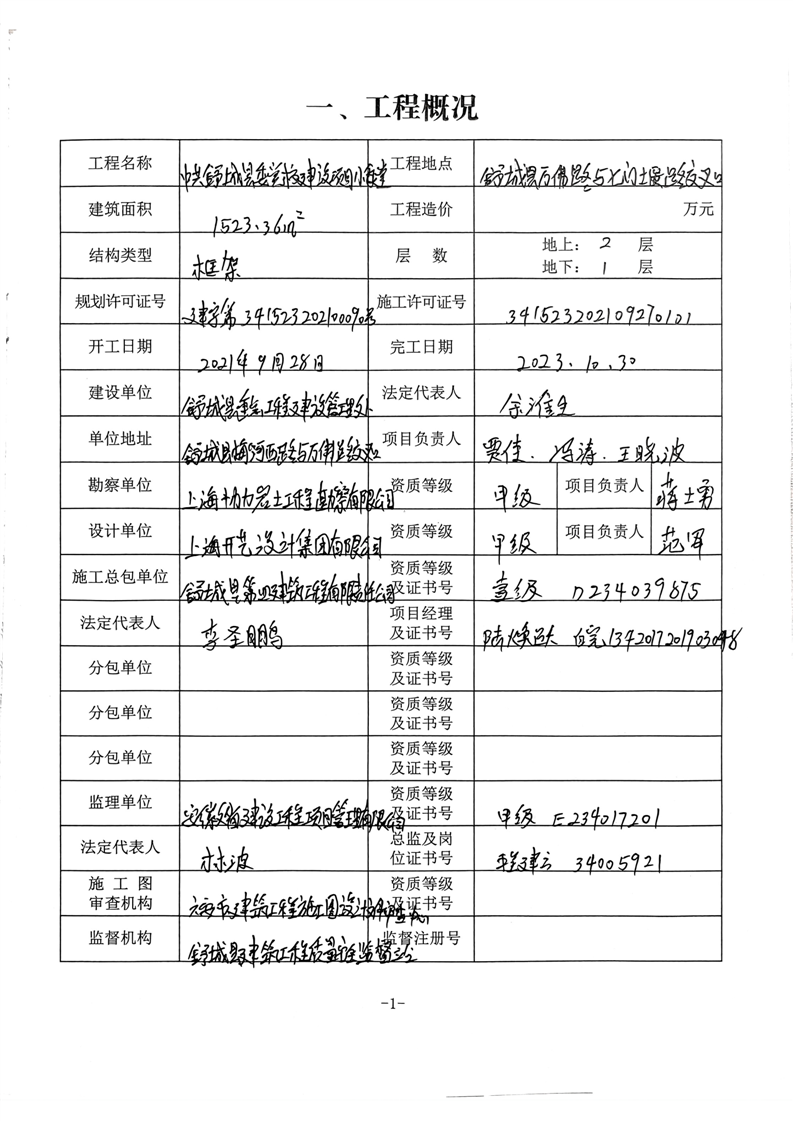 一、工程概况
工程名称 中共舒城县委党校建设项目小食堂 工程地点 舒城县万佛路与七门堰路交叉口
建筑面积 1523.36m² 工程造价 万元
结构类型 框架 层 数 地上：2 层
地下：1 层
规划许可证号 建字第341523202100090号 施工许可证号 341523202109270101
开工日期 2021年9月28日 完工日期 2023.10.30
建设单位 舒城县重点工程建设管理处 法定代表人 余淮生
单位地址 舒城县梅河西路与万佛路交叉口 项目负责人 贾佳．冯涛．王晓波
勘察单位 上海协力岩土工程勘察有限公司 资质等级 甲级 项目负责人 蒋士勇
设计单位 上海开艺设计集团有限公司 资质等级 甲级 项目负责人 范军
施工总包单位 舒城县第四建筑工程有限责任公司 资质等级及证书号 壹级 D234039875
法定代表人 李圣鹏 项目经理及证书号 陆焕跃 皖1342017201903048
分包单位 资质等级及证书号
分包单位 资质等级及证书号
分包单位 资质等级及证书号
监理单位 安徽省建设工程项目管理有限公司 资质等级及证书号 甲级 E234017201
法定代表人 林波 总监及岗位证书号 程建云 34005921
施工图审查机构 六安市建筑工程施工图设计 资质等级及证书号
监督机构 舒城县建筑工程质量安全监督站 监督注册号
-1-